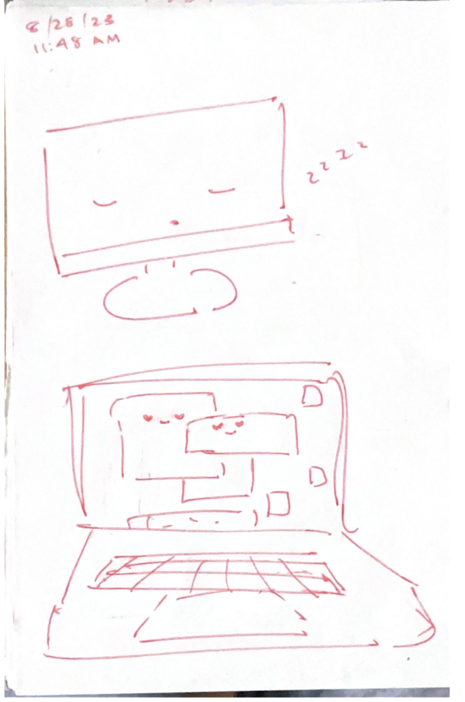 8/28/23
11:48 AM
zzzz